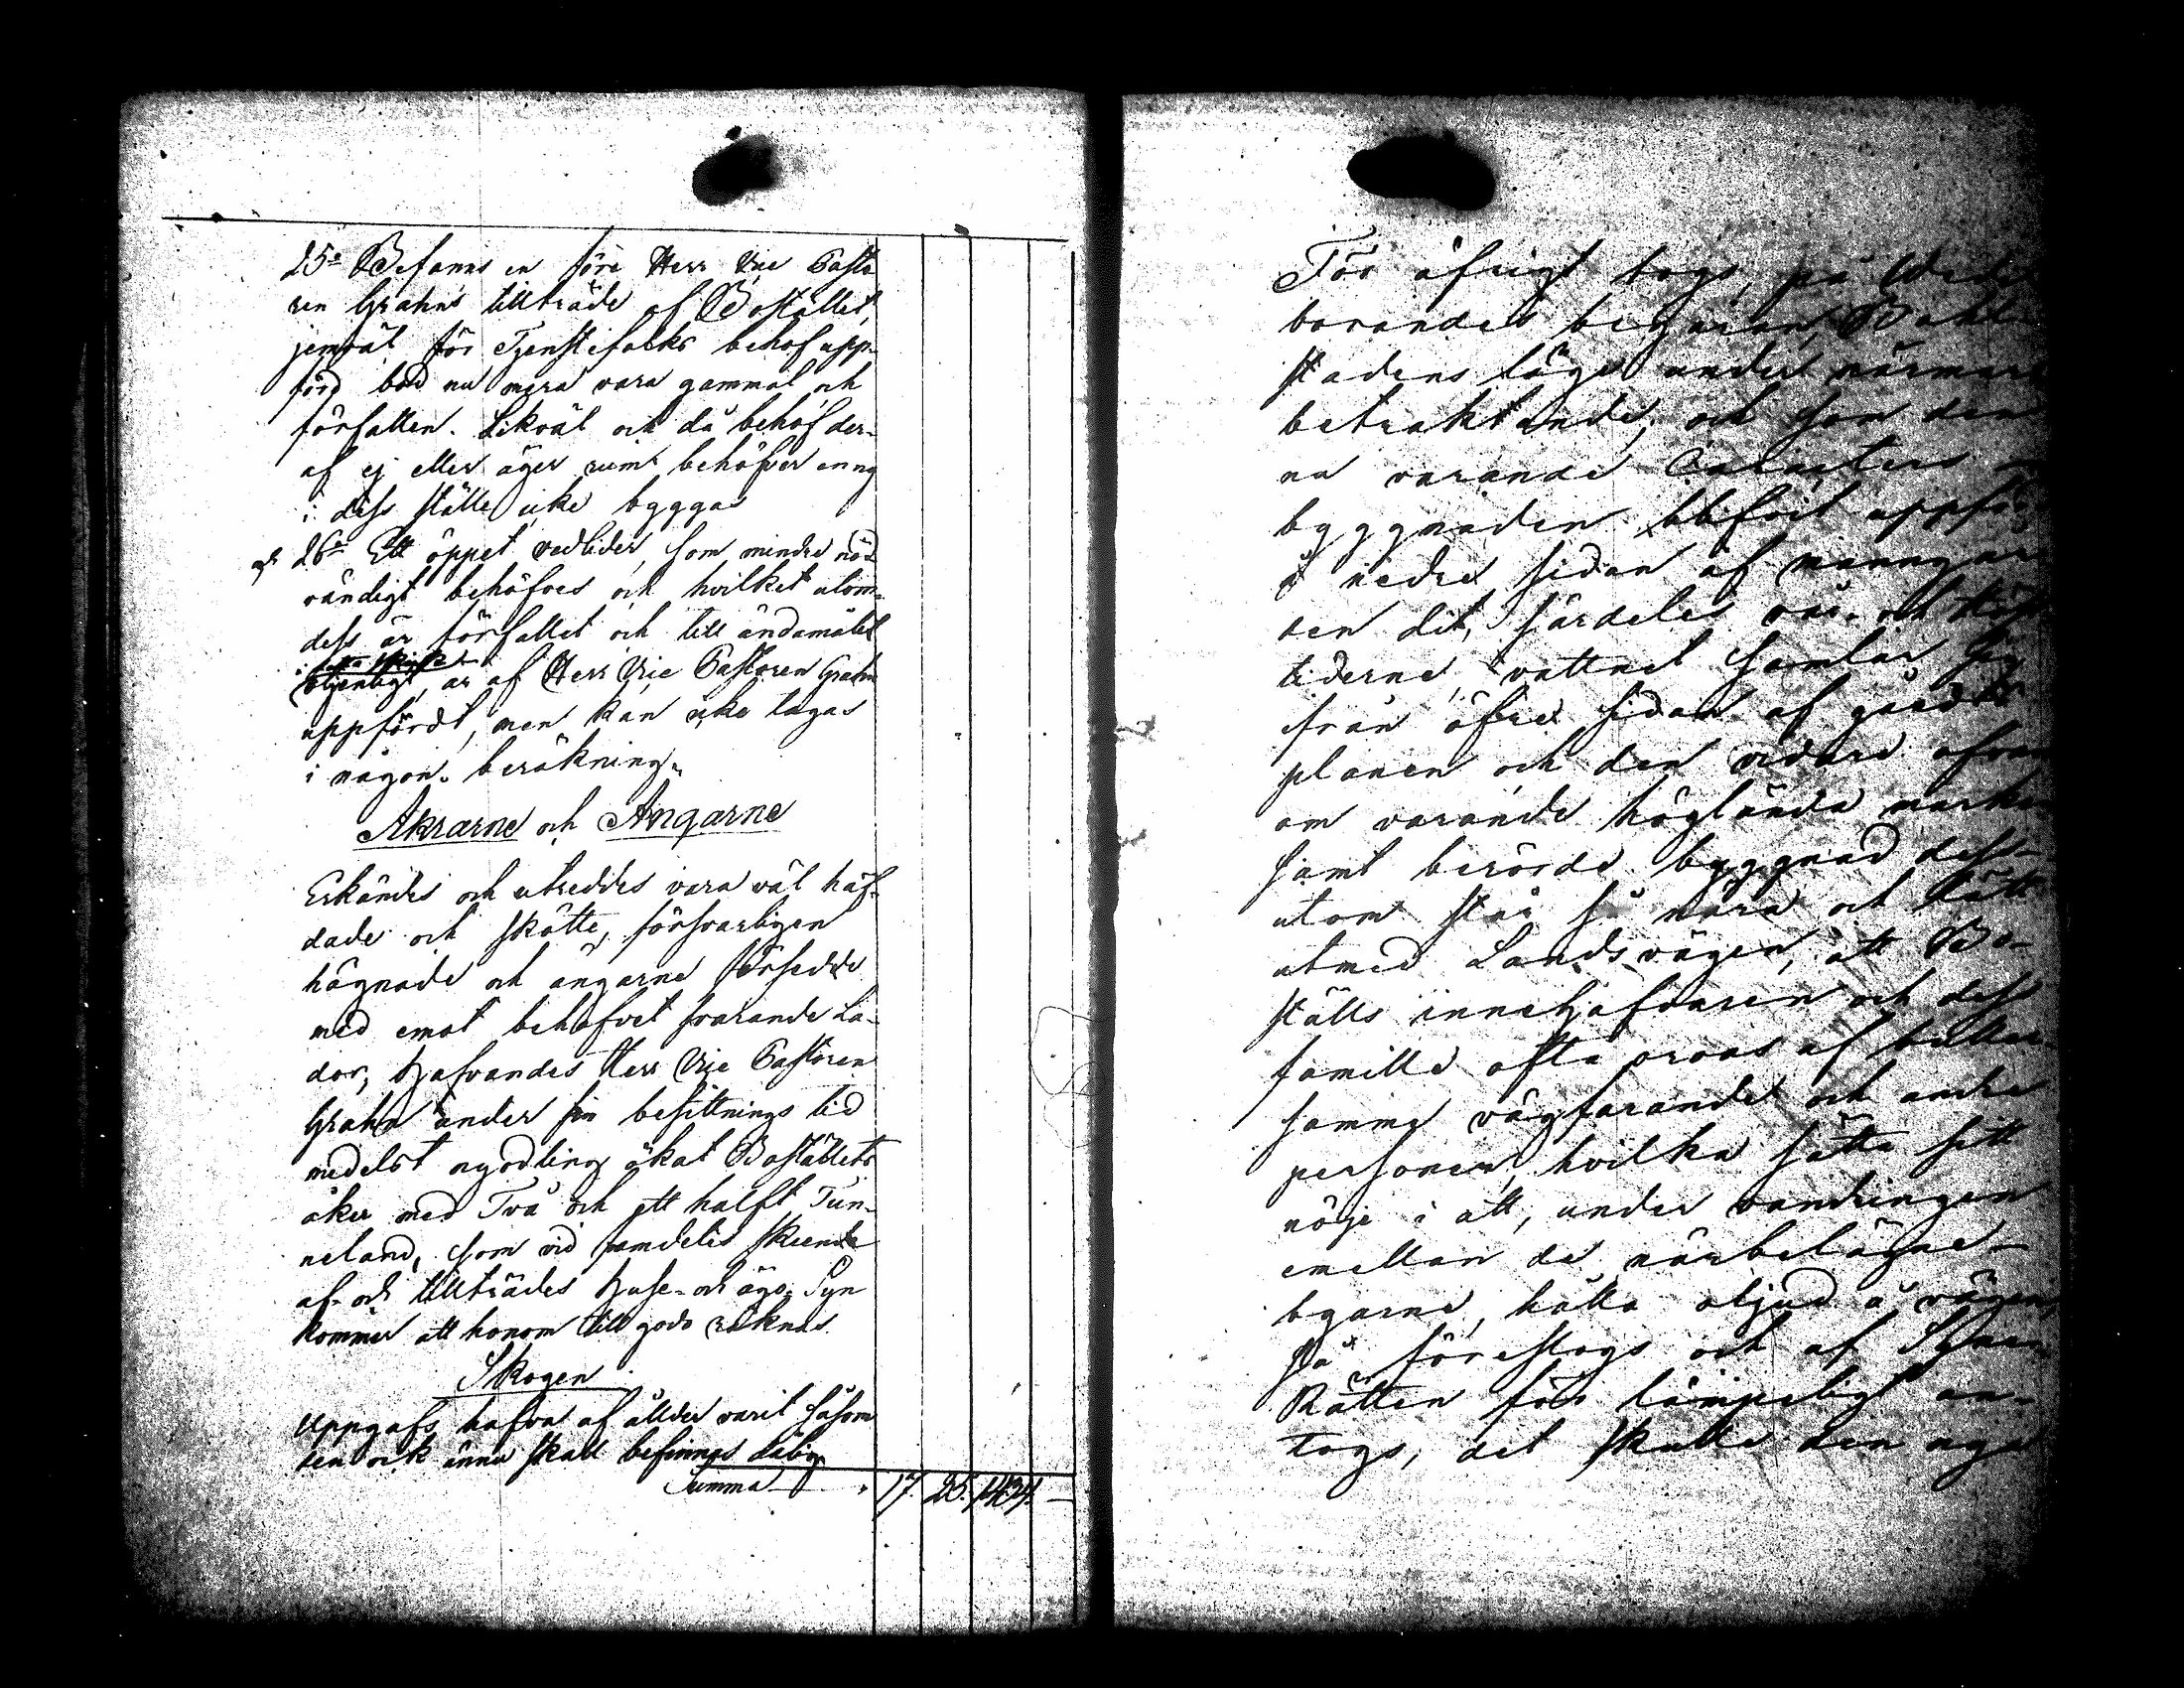 25o Befanns en före Herr Vice Pasto
ren Grahns tillträde af Bostället,
jemväl för Tjenstefolks behof upp-
förd bod nu mera vara gammal och
förfallen. Likväl och då behof der-
af ej eller äger rum behöfver en ny
i dess ställe icke byggas
26o Ett öppet vedlider, som mindre nöd
vändigt behöfves och hvilket utom-
dess är förfallet och till ändamålet
i detta skick
otjenligt, är af Herr Vice Pastoren Grahn
uppfördt, men kan icke tagas
i någon beräkning.
Åkrarne och Ängarne
Erkändes och utreddes vara väl häf-
dade och skötte, försvarligen
hägnade och ängarne försedde
med emot behofvet svarande La-
dor, hafvandes Herr Vice Pastoren
Grahn under sin besittnings tid
medelst nyodling ökat Boställets
åker med Två och ett halft Tun-
neland, som vid framdeles skeende
af- och tillträdes huse- och ägo-Syn
kommer att honom till godo räknas.
Skogen
Uppgafs hafva af ållder varit såsom
den ock ännu skall befinnas dålig
Summa 17. 25. 1434. –
För öfrigt togs, på
borandes begäran,
stadens läge under närmare
betraktande; och som den
nu varande Caracters
byggnaden blifvit uppförd
å nedre sidan af manngår
den dit, särdeles vår- och höst
tiderne, vattnet samlar sig
från öfre sidan af gårds
planen och den vidare ofvan
om varande höglända marken
samt berörde byggnad dess-
utom står så nära och tätt
utmed Landsvägen, att Bo-
ställs innehafvaren och dess
familie ofta oroas af buller
samme vägfarande och andre
personer, hvilka sätta sitt
nöje i att, under vandringen
emellan de närbelägne
byarne, hålla oljud å vägen,
så föreslogs och af Syne-
Rätten för lämpeligt an-
togs, att skulle den nya